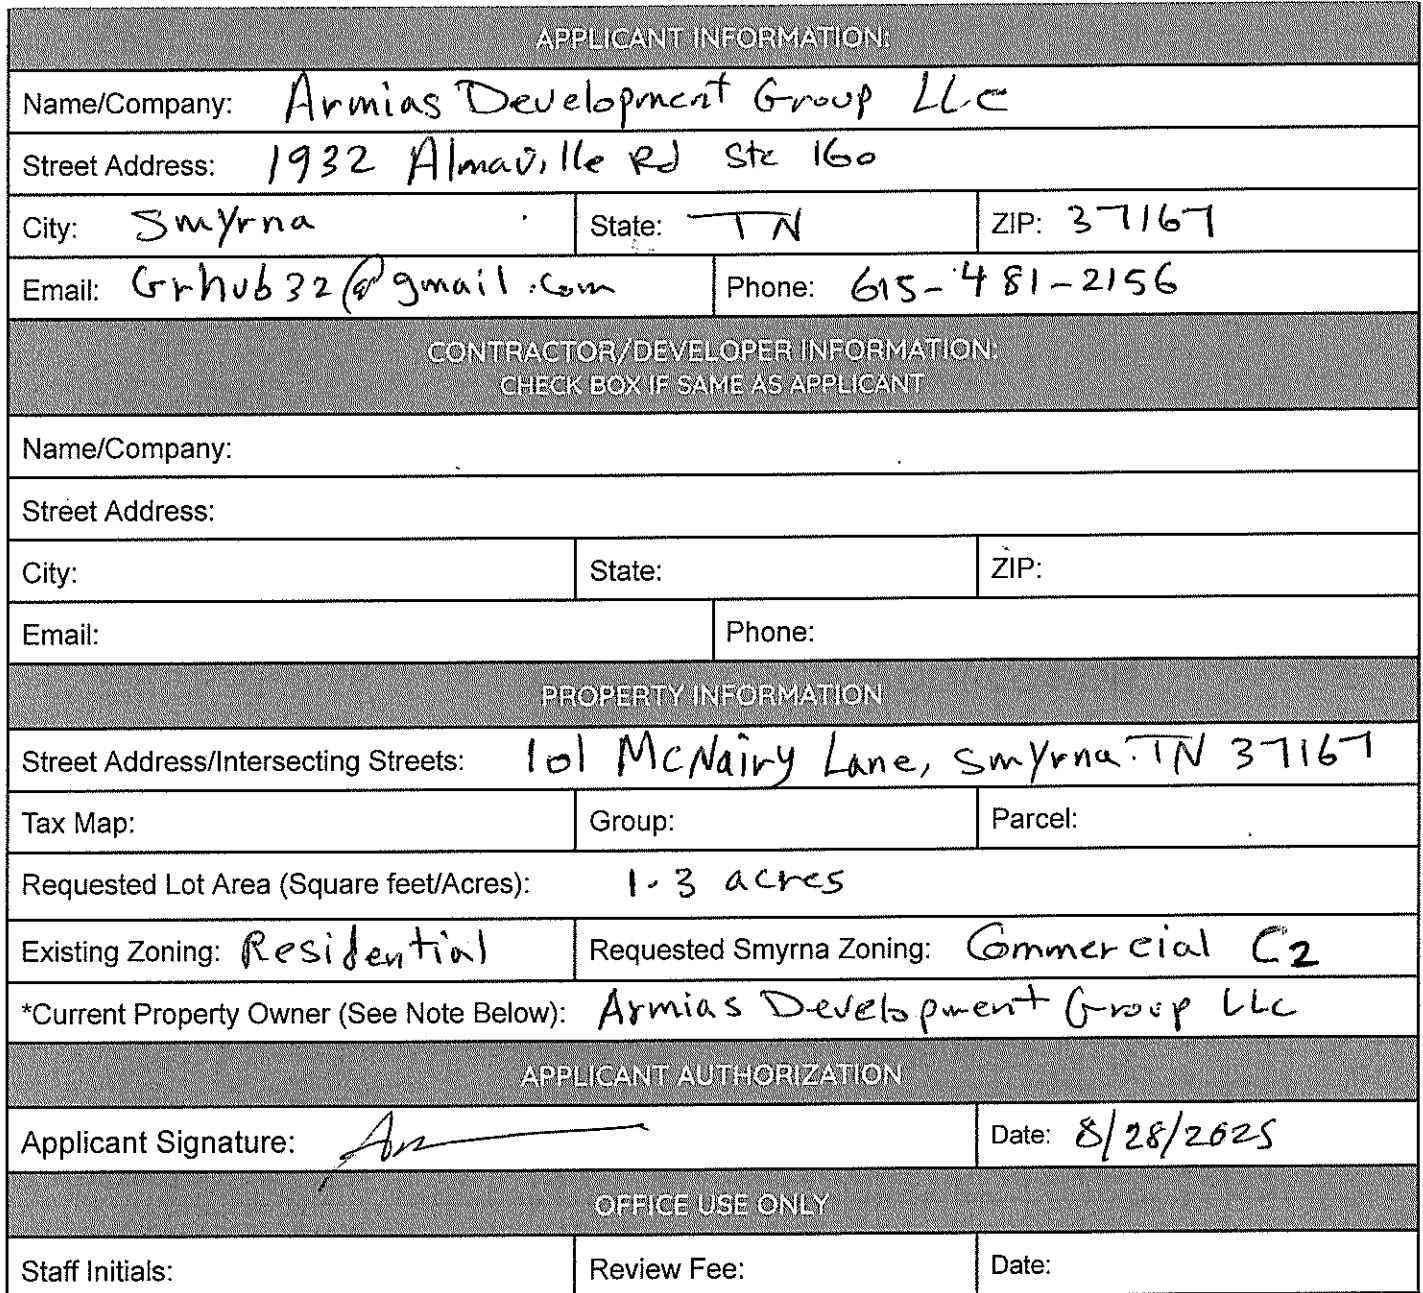 APPLICANT INFORMATION:
Name/Company: Armias Development Group LLC
Street Address: 1932 Almaville Rd Ste 160
City: Smyrna State: TN ZIP: 37167
Email: Grhub32@gmail.com Phone: 615-481-2156
CONTRACTOR/DEVELOPER INFORMATION:
CHECK BOX IF SAME AS APPLICANT
Name/Company:
Street Address:
City: State: ZIP:
Email: Phone:
PROPERTY INFORMATION
Street Address/Intersecting Streets: 101 McNairy Lane, Smyrna. TN 37167
Tax Map: Group: Parcel:
Requested Lot Area (Square feet/Acres): 1.3 acres
Existing Zoning: Residential Requested Smyrna Zoning: Commercial C2
*Current Property Owner (See Note Below): Armias Development Group LLC
APPLICANT AUTHORIZATION
Applicant Signature: Date: 8/28/2025
OFFICE USE ONLY
Staff Initials: Review Fee: Date: